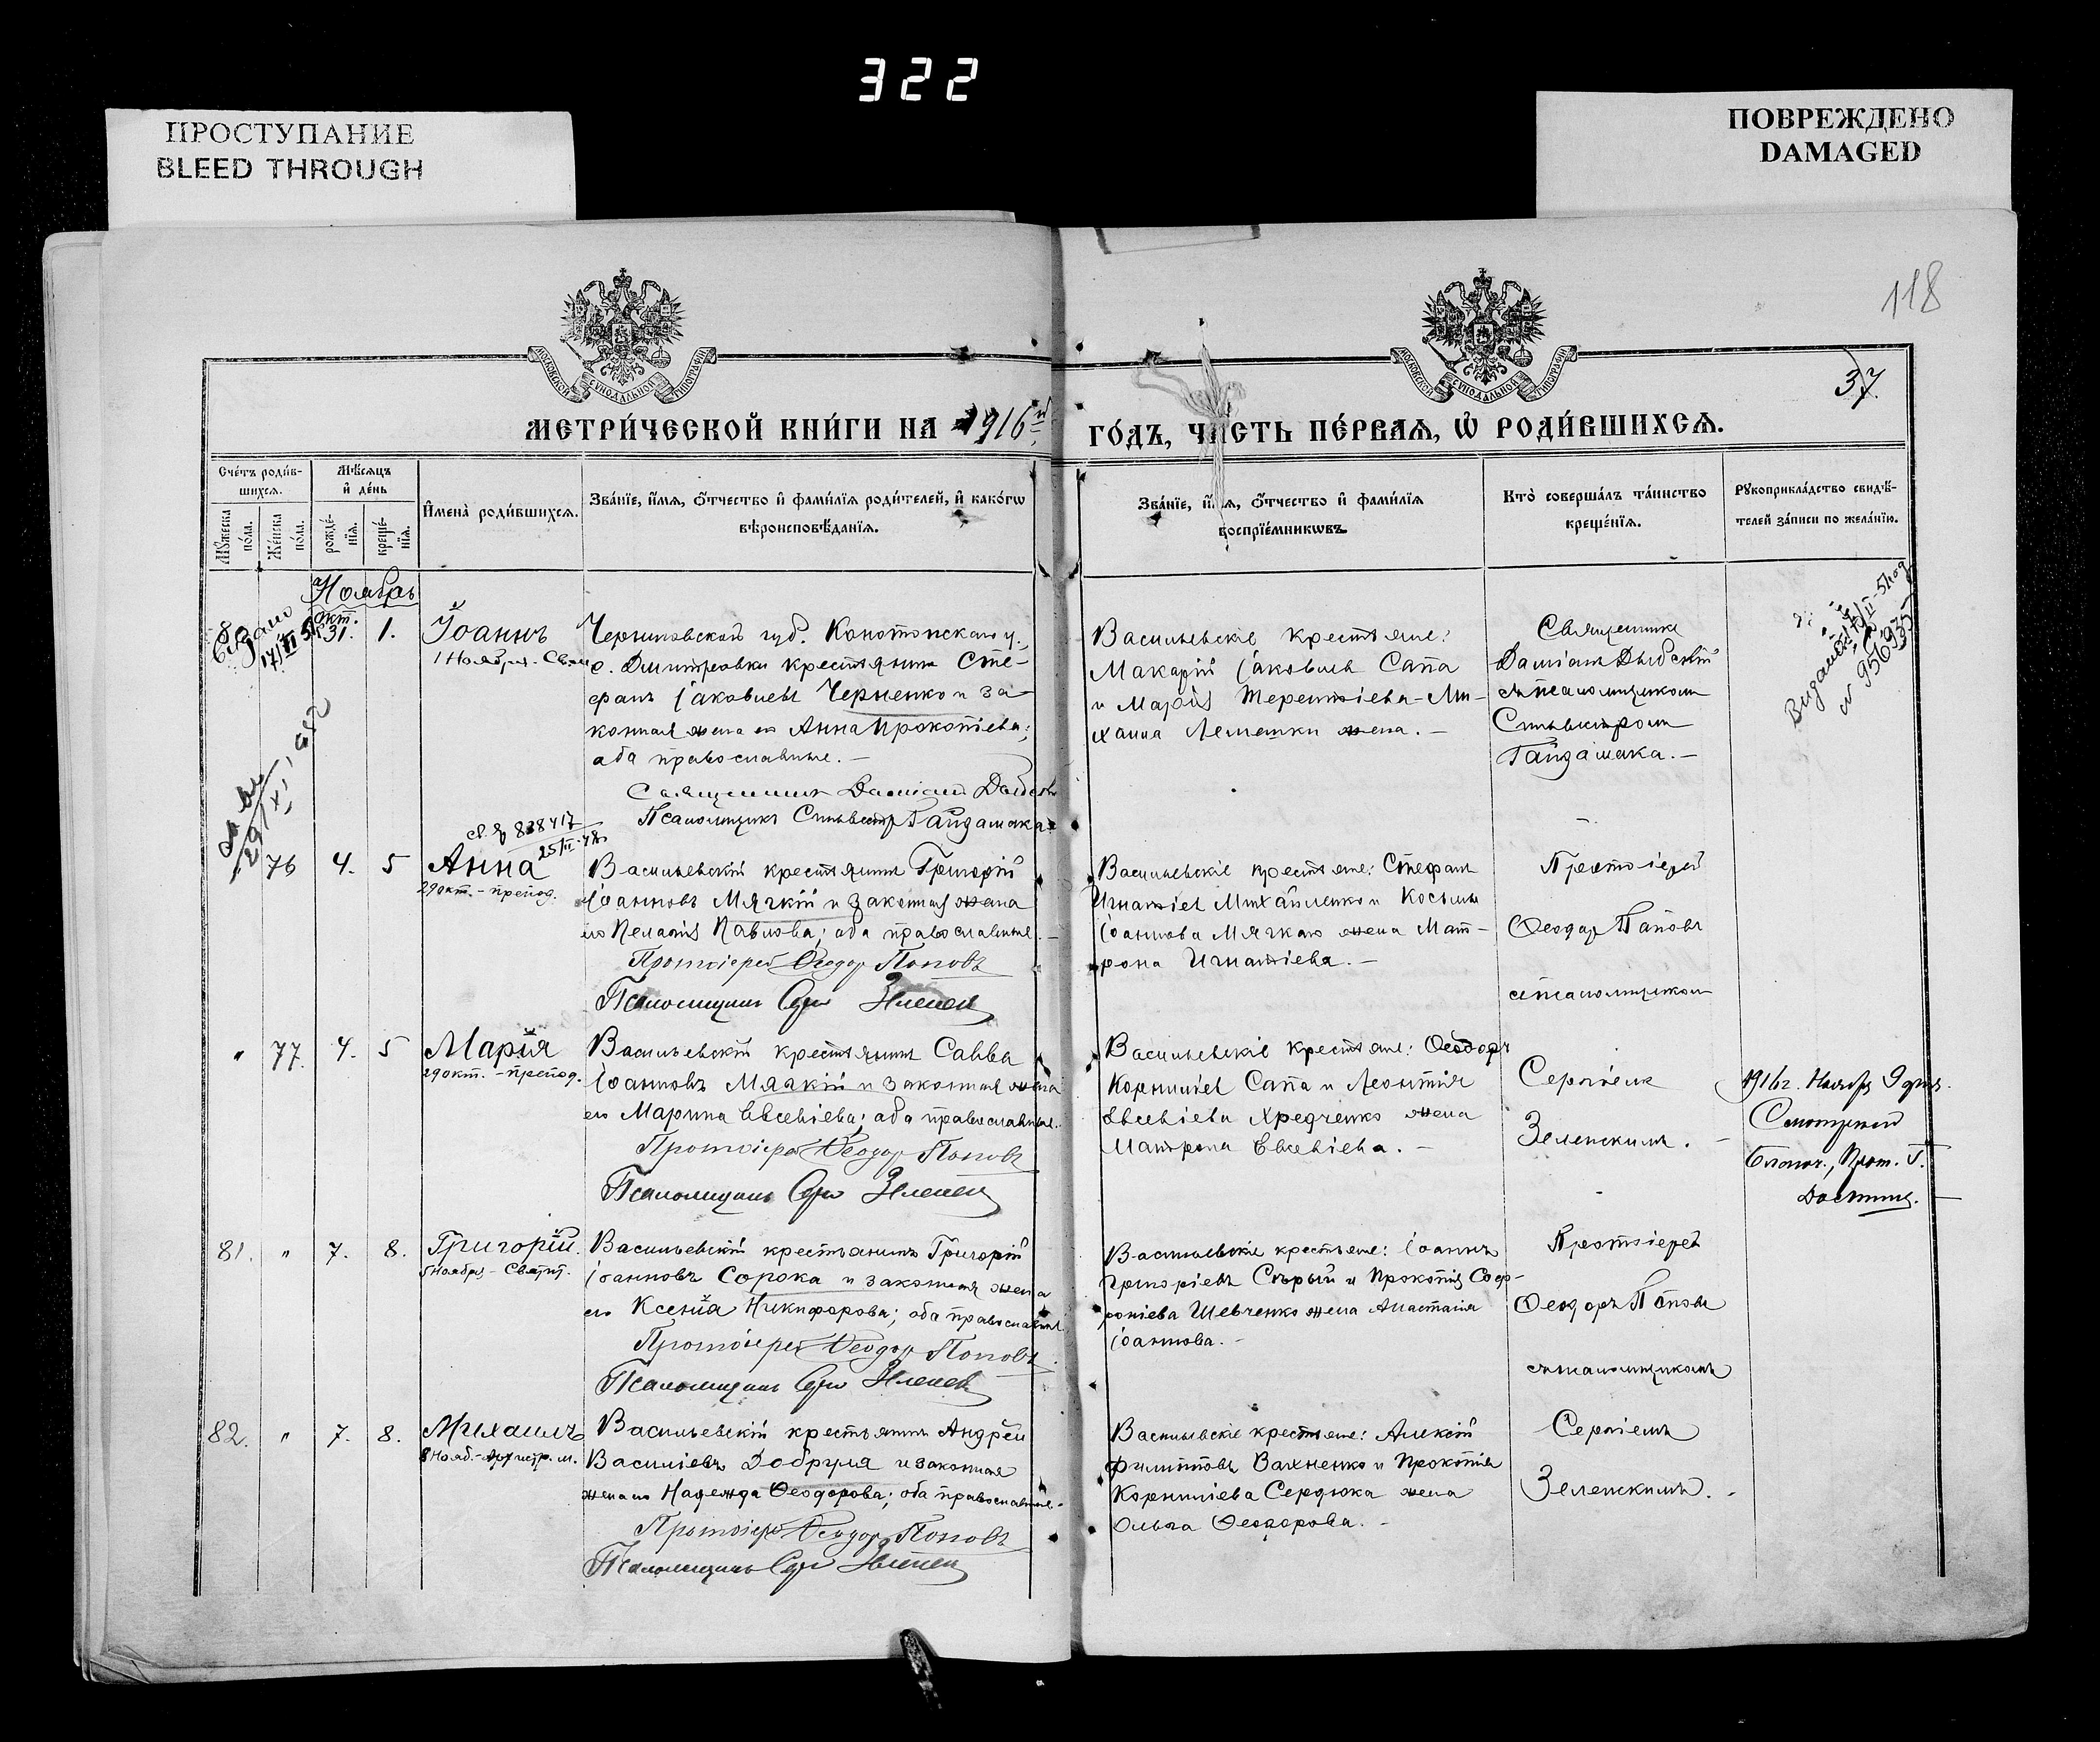 322
ПРОСТУПАНИЕ
BLEED THROUGH
ПОВРЕЖДЕНО
DAMAGED
118
МОСКОВСКОЙ СѴНОДАЛЬНОЙ ТИПОГРАФІИ
МОСКОВСКОЙ СѴНОДАЛЬНОЙ ТИПОГРАФІИ
37.
МЕТРИ́ЧЕСКОЙ КНИ́ГИ НА 1916й
ГО́ДЪ, ЧА́СТЬ ПЕ́РВАѦ, Ѡ҆ РОДИ́ВШИХСѦ.
Сче́тъ роди́в-
шихсѧ.
Мꙋ́жеска по́ла.
Же́нска по́ла.
Мѣ́сѧцъ
и҆ де́нь
рожде́-
нїѧ.
креще́-
нїѧ.
И҆мена̀ роди́вшихсѧ.
Зва́нїе, и҆́мѧ, ѻ҆́тчество и҆ фами́лїѧ роди́телей, и҆ како́гѡ
вѣроисповѣ́данїѧ.
Зва́нїе, и҆́мѧ, ѻ҆́тчество и҆ фами́лїѧ
воспрїе́мникѡвъ.
Кто̀ соверша́лъ та́инство
креще́нїѧ.
Рꙋкоприкла́дство свидѣ́-
телей за́писи по жела́нїю.
Ноябрь
Окт.
31. 1. Іоаннъ
1 Ноября
Черниговской губ. Конотопскаго у.,
с. Дмитровки крестьянин Сте-
фанъ Іаковлевъ Черненко и за-
конная жена его Анна Прокопіева;
оба православные. –
Священник Даміан
Псаломщикъ Сильвестр Гайдамака
Васильевскіе крестьяне:
Макарій Іаковлев Сапа
и Марія Терентіева – Ми-
хаила Лемешки жена. –
Священник
Даміан
с псаломщиком
Сильвестром
Гайдамака. –
№ 956935
838417
25/II-48
76 4. 5 Анна
29 окт. – препод.
Васильевскій крестьянин Григорій
Іоанновъ Мягкій и законная жена
его Пелагія Павлова; оба православные. –
Протоіерей Ѳеодор Поповъ
Псаломщикъ
Васильевскіе крестьяне: Стефан
Игнатіев Михайленко и Косьмы
Іоаннова Мягкаго жена Мат-
рона Игнатіева. –
Протоіерей
Ѳеодор Попов
с псаломщиком
" 77. 4. 5 Марія
29 окт. – препод.
Васильевскій крестьянин Савва
Іоанновъ Мягкій и законная жена
его Марина Евсевіева; оба православные.
Протоіерей Ѳеодор Поповъ
Псаломщикъ
Васильевскіе крестьяне: Ѳеодор
Корниліев Сапа и Леонтія
Евсевіева жена
Матрона Евсевіева. –
Сергіем
Зеленским. –
1916 г. Ноября 9 дня.
Благоч., Прот. Г.
81. " 7. 8. Григорій.
5 Ноября – Святит.
Васильевскій крестьянинъ Григорій
Іоанновъ Сорока и законная жена
его Ксенія Никифорова; оба православные.
Протоіерей Ѳеодор Поповъ
Псаломщикъ
Васильевскіе крестьяне: Іоаннъ
Григоріевъ Сѣрый и Прокопія Соф-
роніева Шевченко жена Анастасія
Іоаннова. –
Протоіерей
Ѳеодоръ Попов
с псаломщикомъ
82. " 7. 8. Михаилъ
8 Нояб. – Архистр. М.
Васильевскій крестьянин Андрей
Василіевъ Добруля и законная
жена его Надежда Ѳеодорова; оба православные.
Протоіерей Ѳеодор Поповъ
Псаломщикъ
Васильевскіе крестьяне: Алексій
Филиппов Вахненко и Прокопія
Корниліева Сердюка жена
Ольга Ѳеодорова. –
Сергіемъ
Зеленскимъ. –